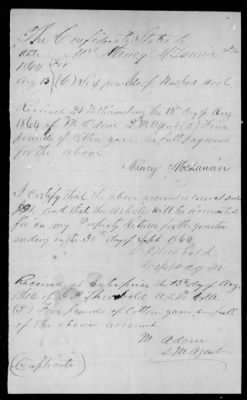 The Confederate States
To Mrs Nancy McLauren Dr
1864 For
Aug 13 (6) Six pounds of Washed Wool
Received at the 13th day of Aug
1864 of M. Adom Agent (5) Five
pounds of cotton yarn in full payment
for the above
Nancy McLauren
I certify that the above account is correct and
just, and that the articles will be accounted
for on my Property Return for the quarter
ending on the 30th day of Sept 1864
Received at Enterprise the 13th day of Aug
1864 of
(5) Five pounds of cotton yarn in full
of the above account
M Adom
Agent
(Duplicate)